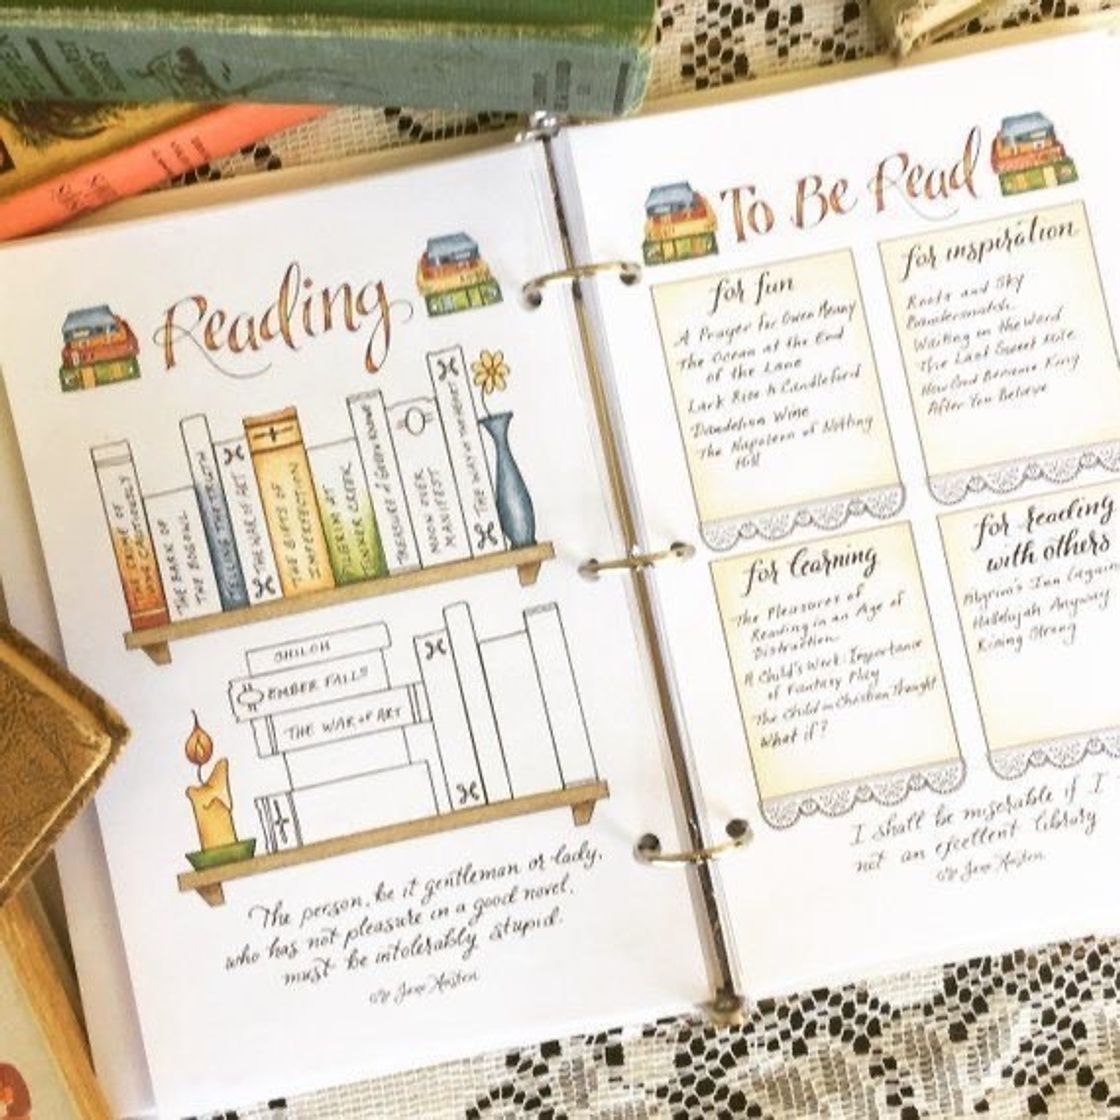 Reading
THE CRIME OF
LIVING CAUTIOUSLY
THE BARK OF
THE BOG OWL
TELLING THE TRUTH
THE WAR OF ART
THE GIFTS OF
IMPERFECTION
PILGRIM AT
TINKER CREEK
NOON OVER
MANIFEST
SHILOH
EMBER FALLS
THE WAR OF ART
The person, be it gentleman or lady,
who has not pleasure in a good novel,
must be intolerably stupid.
Jane Austen
To Be Read
for fun
A Prayer for Owen Meany
The Ocean at the End
of the Lane
Lark Rise to Candleford
Dandelion Wine
The Napoleon of Notting
Hill
for inspiration
Roots and Sky
Wandersnatch
Waiting on the Word
The Last Sweet Mile
How God Became King
After You Believe
for learning
The Pleasures of
Reading in an Age of
Distraction
A Child's Work: Importance
of Fantasy Play
The Child in Christian Thought
What if?
for reading
with others
Pilgrim's Inn
Hallelujah Anyway
Rising Strong
I shall be miserable if I
not an excellent library
Jane Austen